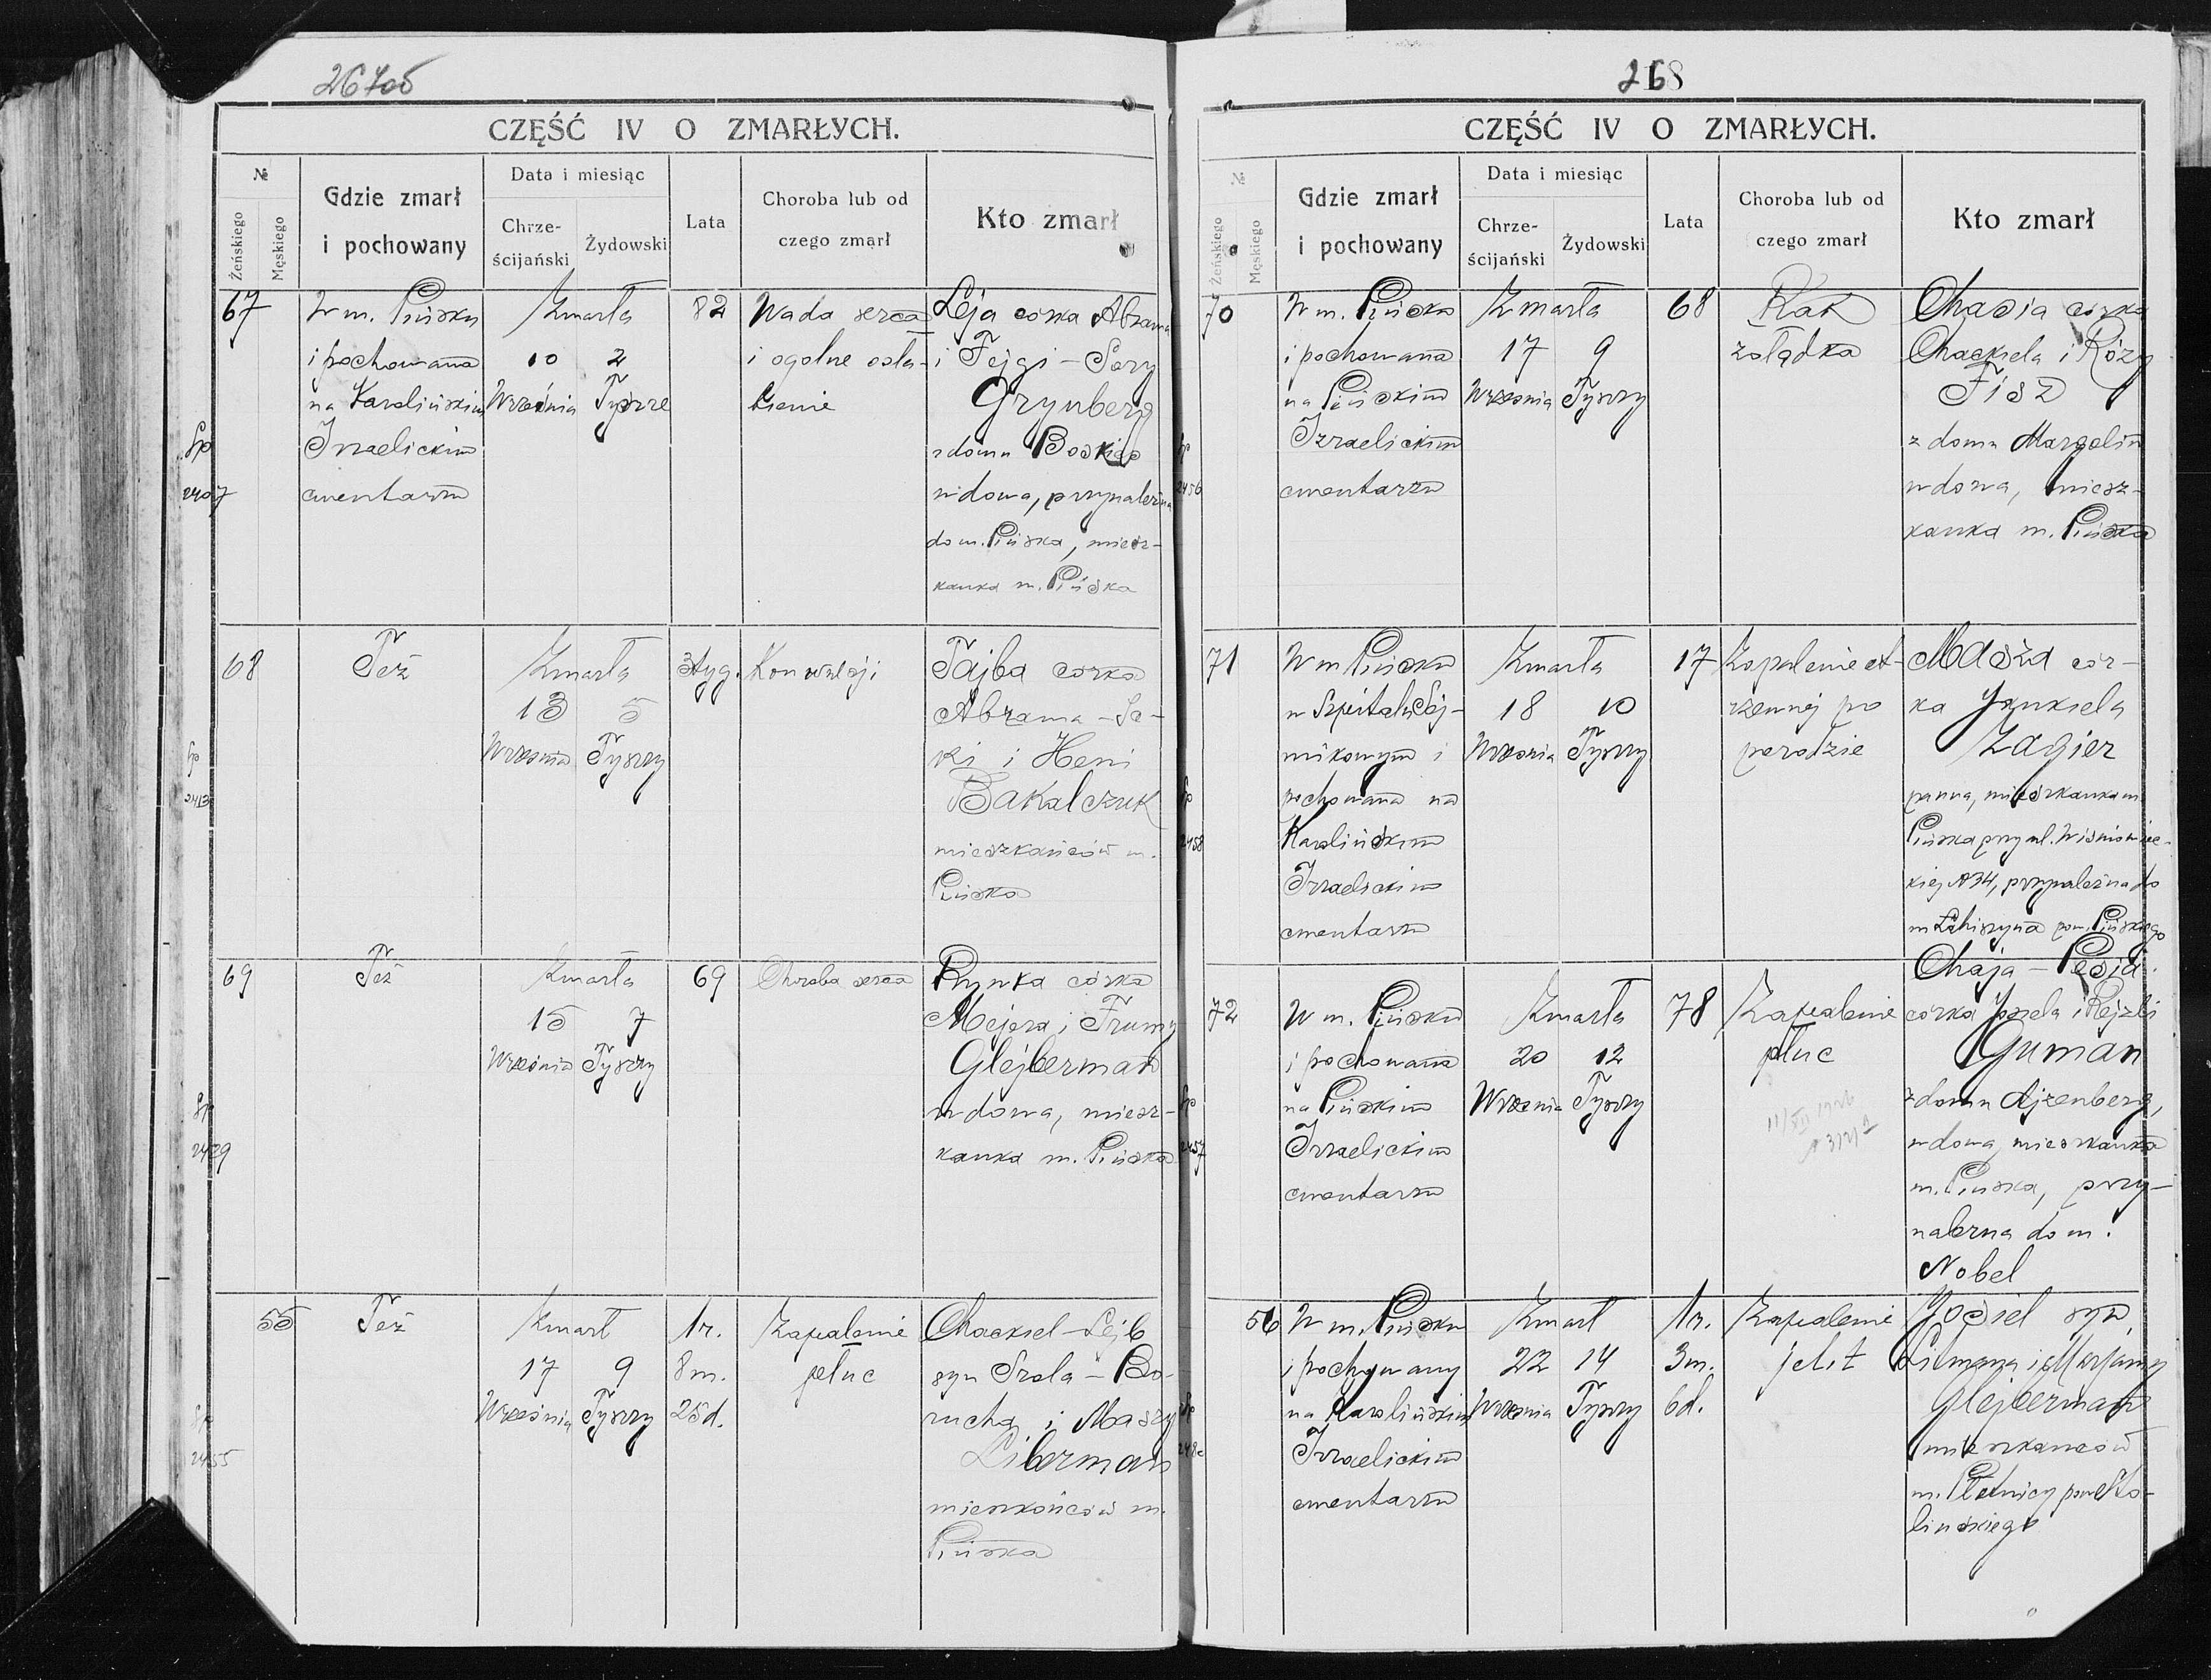 267
CZĘŚĆ IV O ZMARŁYCH.
№
Żeńskiego
Męskiego
Gdzie zmarł
i pochowany
Data i miesiąc
Chrze-
ścijański
Żydowski
Lata
Choroba lub od
czego zmarł
Kto zmarł
67
W m. Pińsku
i pochowana
na Karolińskim
Izraelickim
cmentarzu
Zmarła
10 2
Września Tyszre
82
Wada serca
i ogolne osła-
bienie
Leja córka Abrama
i Fejgi-Sory
Grynberg
z domu Boskies
wdowa, przynależna
do m. Pińska, miesz-
kanka m. Pińska
Sp
2407
68
Też
Zmarła
13 5
Września Tyszry
3 tyg.
Konwulsji
Tajba córka
Abrama-Ic-
ki i Heni
Bakalczuk
mieszkańców m.
Pińska
Sp
2413
69
Też
Zmarła
15 7
Września Tyszry
69
Choroba serca
Prynka córka
Mejera i Frumy
Glejberman
wdowa, miesz-
kanka m. Pińska
Sp
2429
55
Też
Zmarł
17 9
Września Tyszry
1 r.
8 m.
25 d.
Zapalenie
płuc
Chackiel-Lejb
syn Srola-Bo-
rucha i Maszy
Liberman
mieszkańców m.
Pińska
Sp
2455
268
CZĘŚĆ IV O ZMARŁYCH.
№
Żeńskiego
Męskiego
Gdzie zmarł
i pochowany
Data i miesiąc
Chrze-
ścijański
Żydowski
Lata
Choroba lub od
czego zmarł
Kto zmarł
70
W m. Pińsku
i pochowana
na Pińskim
Izraelickim
cmentarzu
Zmarła
17 9
Września Tyszry
68
Rak
żołądka
Chasia córka
Chackiela i Rózy
Fisz
z domu Margolin
wdowa, miesz-
kanka m. Pińska
Sp
2456
71
W m. Pińsku
w Szpitalu Sej-
mikowym i
pochowana na
Karolińskim
Izraelickim
cmentarzu
Zmarła
18 10
Września Tyszry
17
Zapalenie ot-
rzewnej po
porodzie
Masza cór-
ka Jankiela
Zagier
panna, mieszkanka m.
Pińska przy ul. Wiśniowiec-
kiej №34, przynależna do
m. Łohiszyna pow. Pińskiego
Sp
2458
72
W m. Pińsku
i pochowana
na Pińskim
Izraelickim
cmentarzu
Zmarła
20 12
Września Tyszry
78
Zapalenie
płuc
Chaja-Pesia
córka Josela i Rejzli
Guman
z domu Ajzenberg,
wdowa, mieszkanka
m. Pińska, przy-
należna do m.
Nobel
Sp
2457
56
W m. Pińsku
i pochowany
na Karolińskim
Izraelickim
cmentarzu
Zmarł
22 14
Września Tyszry
1 r.
3 m.
6 d.
Zapalenie
jelit
Josiel syn
Lilmana i Marjamy
Glejberman
mieszkańców
m. Płotnicy pow. Sto-
lińskiego
Sp